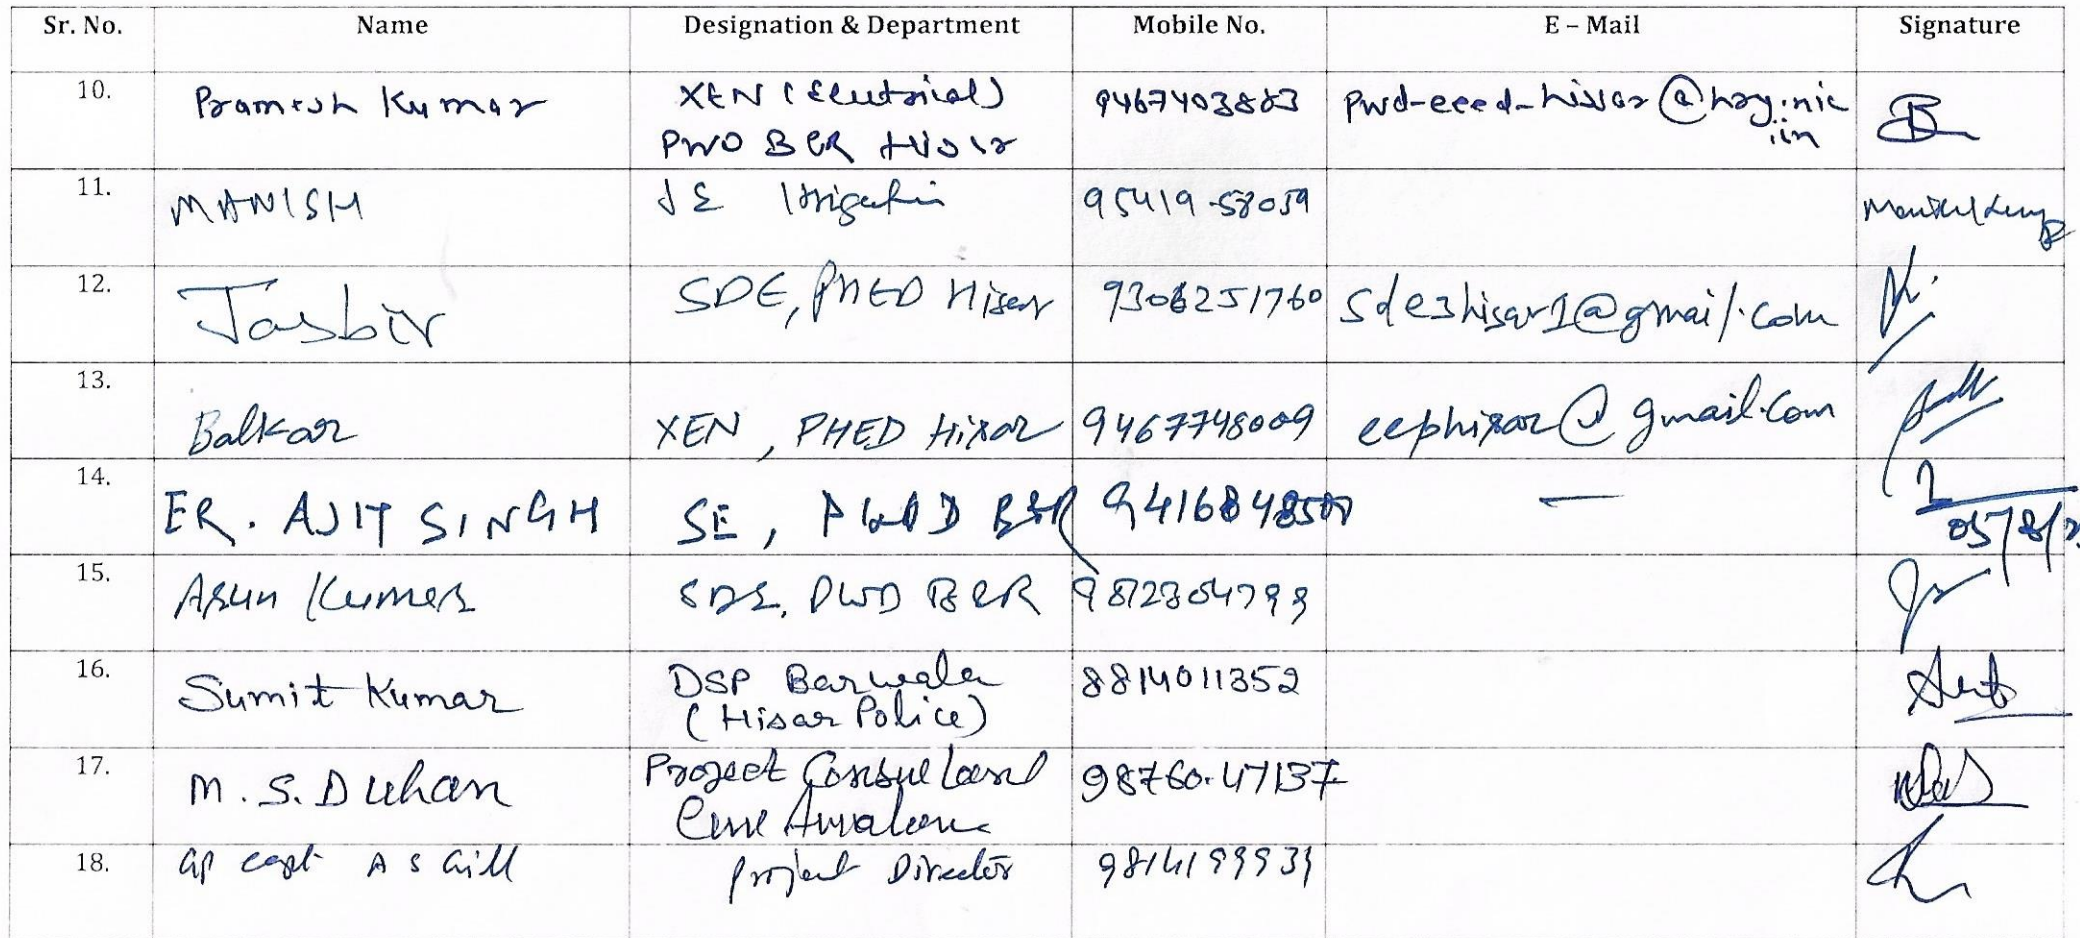 Sr. No. Name Designation & Department Mobile No. E – Mail Signature
10. Pramesh Kumar XEN (Electrical) 9467403883 pwd-eeed-hisar@hry.nic
PWD B&R Hisar .in
11. MANISH JE Irrigation 95419-58039
12. Jasbir SDE, PHED Hisar 9306251760 sde3hisar1@gmail.com
13. Balkar XEN, PHED Hisar 9467748009 eephisar@gmail.com
14. ER. AJIT SINGH SE, PWD B&R —
05/8/
15. Arun Kumar SDE, PWD B&R
16. Sumit Kumar DSP Barwala 8814011352
(Hisar Police)
17. M. S. Duhan Project Consultant 98760.47137
18. GP Capt A S Gill Project Director 9814199931